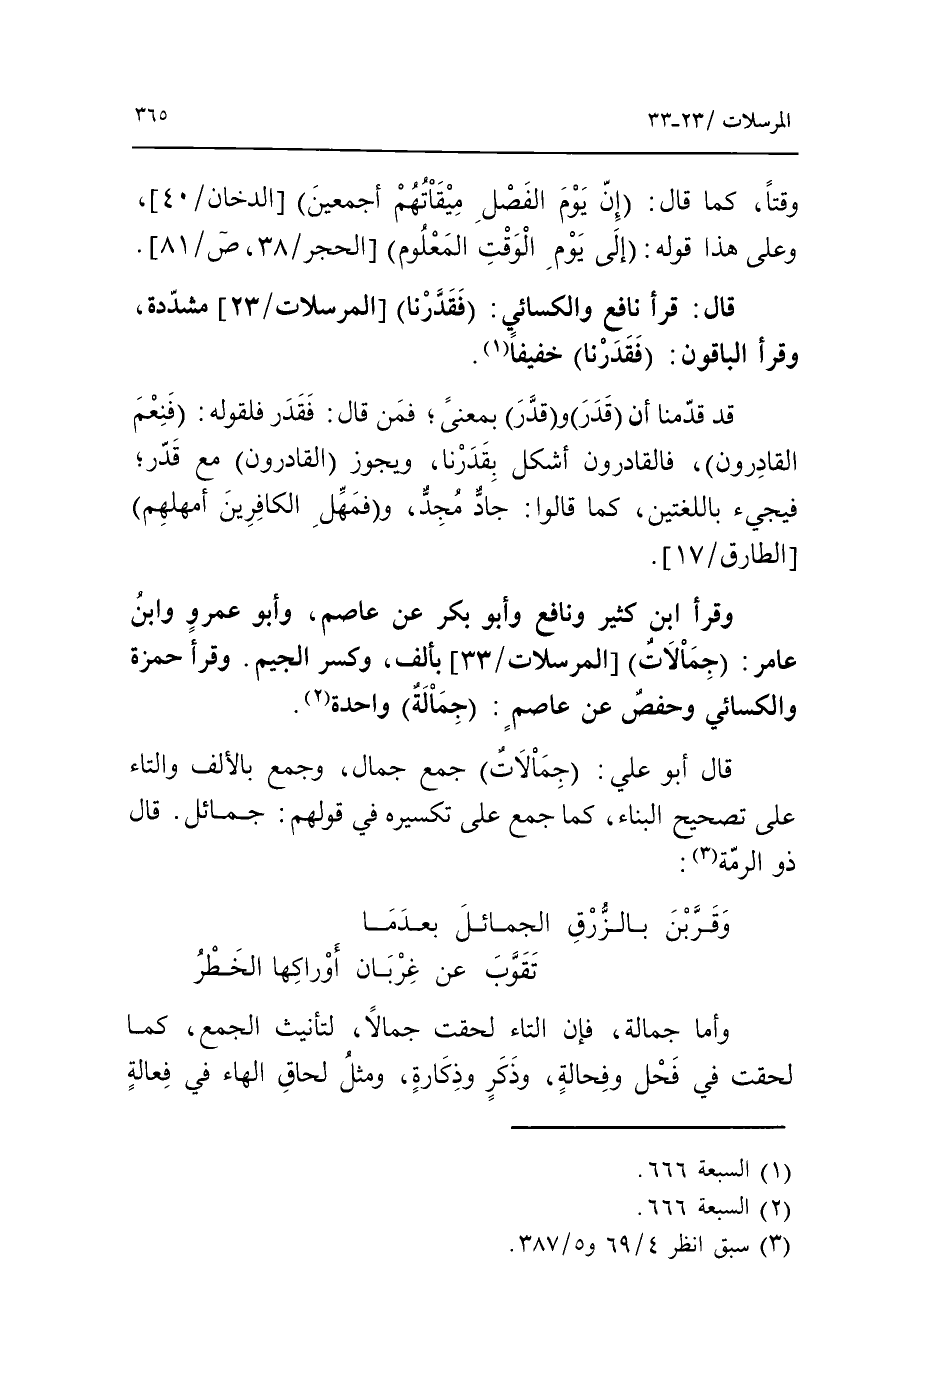 المرسلات /٢٣-٣٣
٣٦٥
وقتاً، كما قال: (إِنّ يَوْمَ الفَصْلِ مِيْقَاْتُهُمْ أجمعينَ) [الدخان/٤٠]،
وعلى هذا قوله: (إلَى يَوْمِ الْوَقْتِ المَعْلُوم) [الحجر/٣٨، صَ/٨١].
قال: قرأ نافع والكسائي: (فَقَدَّرْنا) [المرسلات/٢٣] مشدّدة،
وقرأ الباقون: (فَقَدَرْنا) خفيفاً(١).
قد قدّمنا أن (قَدَرَ)و(قدَّرَ) بمعنىً؛ فمَن قال: فَقَدَر فلقوله: (فَنِعْمَ
القادِرون)، فالقادرون أشكل بِقَدَرْنا، ويجوز (القادرون) مع قَدّر؛
فيجيء باللغتين، كما قالوا: جادٌّ مُجِدٌّ، و(فمَهِّلِ الكافِرِينَ أمهلهم)
[الطارق/١٧].
وقرأ ابن كثير ونافع وأبو بكر عن عاصم، وأبو عمروٍ وابنُ
عامر: (جِمَاْلَاتٌ) [المرسلات/٣٣] بألف، وكسر الجيم. وقرأ حمزة
والكسائي وحفصٌ عن عاصمٍ: (جِمَاْلَةٌ) واحدة(٢).
قال أبو علي: (جِمَاْلَاتٌ) جمع جمال، وجمع بالألف والتاء
على تصحيح البناء، كما جمع على تكسيره في قولهم: جمائل. قال
ذو الرمّة(٣):
وَقَرَّبْنَ بالزُّرْقِ الجمائلَ بعدَمَا
تَقَوَّبَ عن غِرْبَان أَوْراكِها الخَطْرُ
وأما جمالة، فإن التاء لحقت جمالاً، لتأنيث الجمع، كما
لحقت في فَحْل وفِحالةٍ، وذَكَرٍ وذِكَارةٍ، ومثلُ لحاقِ الهاء في فِعالةٍ
(١) السبعة ٦٦٦.
(٢) السبعة ٦٦٦.
(٣) سبق انظر ٦٩/٤ و٣٨٧/٥.